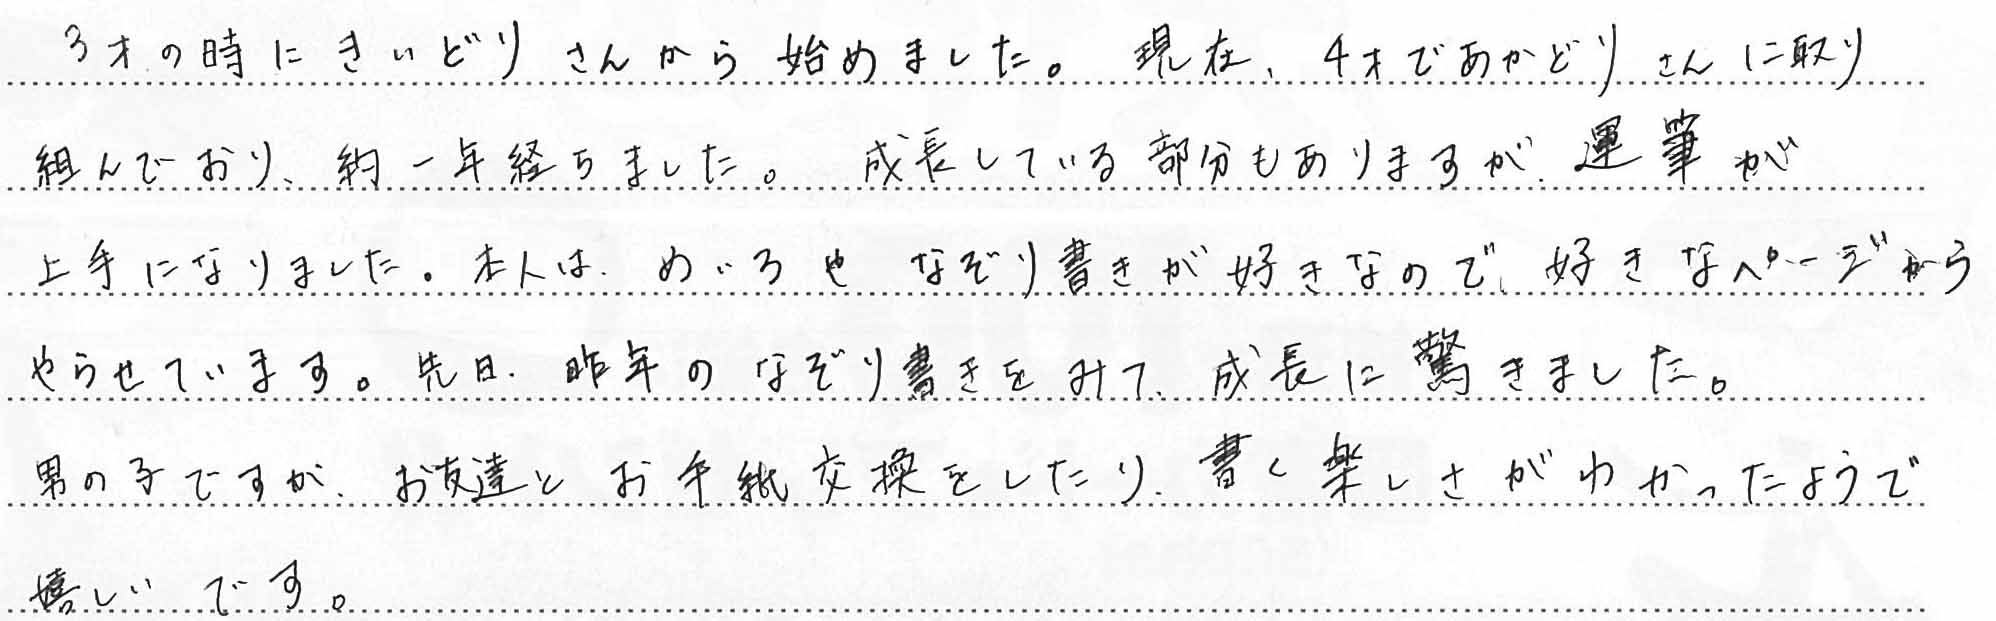 3才の時にきいどりさんから始めました。現在、4才であかどりさんに取り
組んでおり、約一年経ちました。成長している部分もありますが、運筆が
上手になりました。本人は、めいろやなぞり書きが好きなので、好きなページから
やらせています。先日、昨年のなぞり書きをみて、成長に驚きました。
男の子ですが、お友達とお手紙交換をしたり、書く楽しさがわかったようで
嬉しいです。